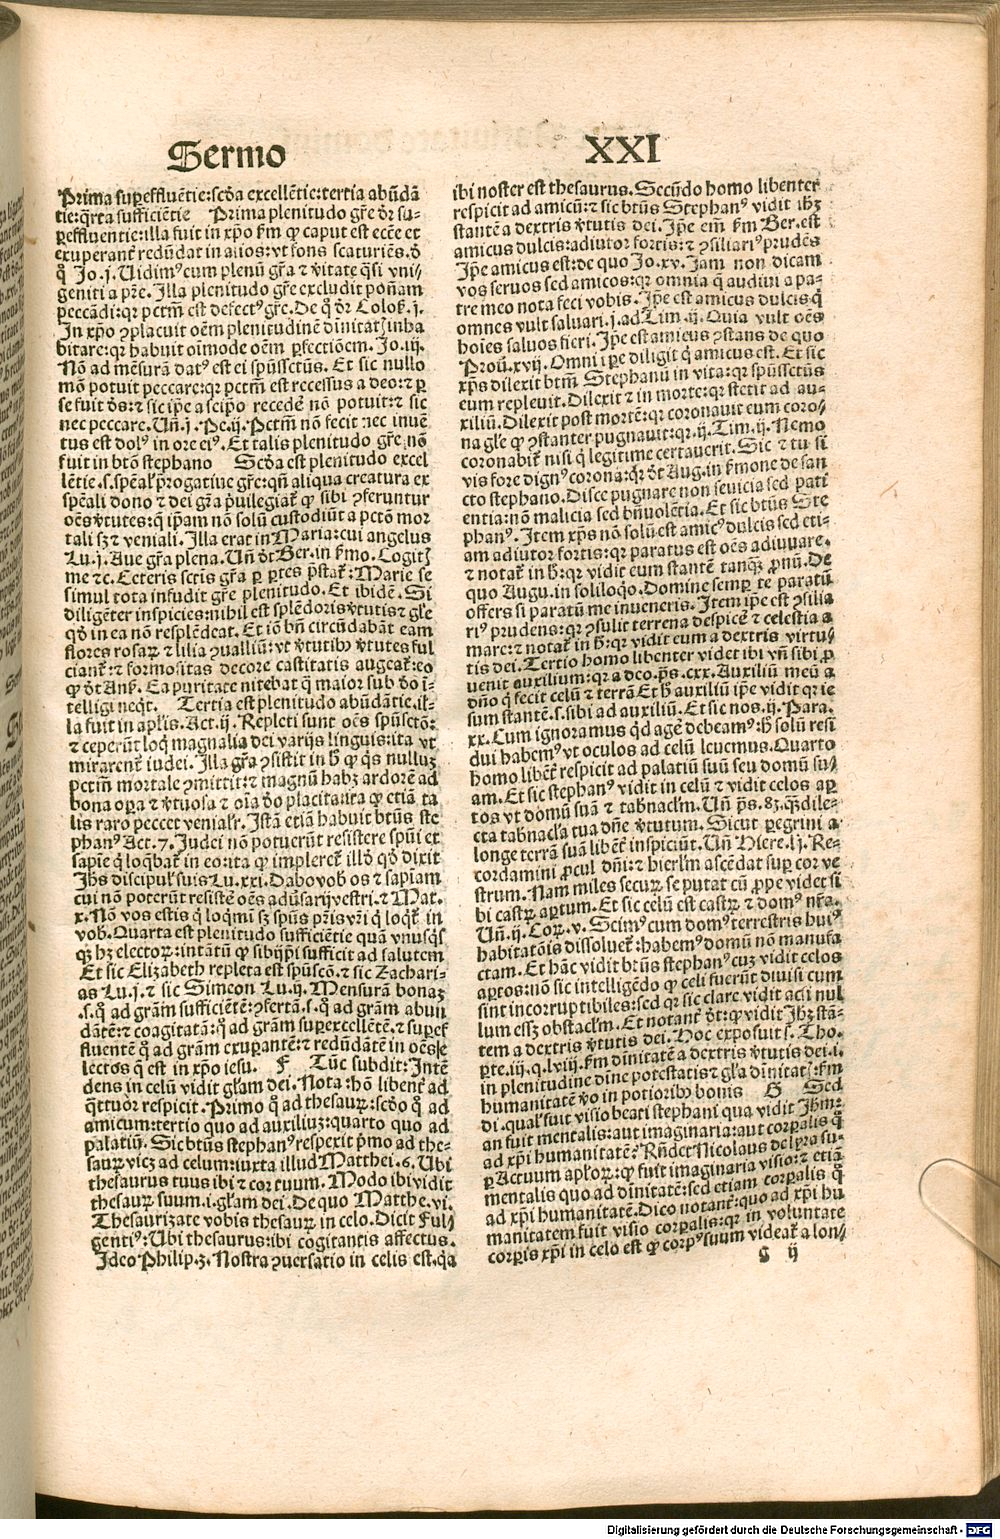 Sermo XXI
Prima suꝑeffluētie:scḋa excellētie:tertia abūdā
tie:q̄rta sufficiētie Prima plenitudo gr̄e dr̄ su-
ꝑeffluentie:illa fuit in xp̄o ẜm ꝙ caput est ecc̄e et
exuperant̄ redūdat in alios:vt fons scaturiēs.ḋ
q̄ Jo.j.Uidimꝰ cum plenū gr̄a ⁊ v̄itate q̄si vni/
geniti a pr̄e.Illa plenitudo gr̄e excludit poñam
peccādi:qꝛ pctm̄ est defectꝰ gr̄e.De q̄ dr̄ Coloẜ.j.
In xp̄o ꝯplacuit oēm plenitudinē diuinitatꝭ inha
bitare:qꝛ habuit oīmode oēm ꝑfectiōem.Jo.iij.
Nō ad mēsurā datꝰ est ei spūssctūs.Et sic nullo
mō potuit peccare:qꝛ pctm̄ est recessus a deo:⁊ ꝑ
se fuit ds̄:⁊ sic ip̄e a seip̄o recedē nō potuit:⁊ sic
nec peccare.Uñ.j.Pe.ij.Pctm̄ nō fecit nec inuē
tus est dolꝰ in ore eiꝰ.Et talis plenitudo gr̄e nō
fuit in btō stephano Scḋa est plenitudo excel
lētie.s.sp̄eal̄ p̄rogatiue gr̄e:qñ aliqua creatura ex
sp̄eali dono ⁊ dei gr̄a p̄uilegiat̄ ꝙ sibi ꝯferuntur
oēs v̄tutes:q̄ ip̄am nō solū custodiūt a pctō mor
tali sꝫ ⁊ veniali.Illa erat in Maria:cui angelus
Lu.j.Aue gr̄a plena.Uñ dt̄ Ber.in ẜmo.Cogitꝭ
me ⁊c.Ceteris sctis gr̄a ꝑ ꝑtes p̄stat̄:Marie se
simul tota infudit gr̄e plenitudo.Et ibidē.Si
diligēter inspicies:nihil est splēdoris v̄tutis ⁊ gl̄e
qḋ in ea nō resplēdeat.Et iō bñ circūdabāt eam
flores rosaꝝ ⁊ lilia ꝯualliū:vt v̄tutibꝰ v̄tutes ful
ciant̄:⁊ formositas decore castitatis augeat̄:eo
ꝙ dt̄ Anẜ.Ea puritate nitebat q̄ maior sub ḋo ī-
telligi neqt̄. Tertia est plenitudo abūdātie.il-
la fuit in apl̄is.Act.ij.Repleti sunt oēs spūsctō:
⁊ ceperūt loq̄ magnalia dei varijs linguis:ita vt
mirarent̄ iudei.Illa gr̄a ꝯsistit in h̄ ꝙ q̄s nulluꝫ
pctm̄ mortale ꝯmittit:⁊ magnū habꝫ ardorē ad
bona oꝑa ⁊ v̄tuosa ⁊ oīa ḋo placita:ita ꝙ etiā ta
lis raro peccet venial̄r.Istā etiā habuit btūs ste
phanꝰ Act.7.Iudei nō potuerūt resistere spūi et
sapīe q̄ loq̄bat̄ in eo:ita ꝙ impleret̄ illḋ qḋ dixit
Jhs̄ discipul̄ suis Lu.xxi.Dabo vob̄ os ⁊ sapīam
cui nō poterūt resistē oēs adūsarij vestri.⁊ Mat.
x.Nō vos estis q̄ loq̄mī sꝫ spūs pr̄is vr̄i q̄ loq̄t̄ in
vob̄.Quarta est plenitudo sufficiētie quā vnusq̄s
qꝫ hꝫ electoꝝ:intātū ꝙ sibijp̄i sufficit ad salutem
Et sic Elizabeth repleta est spūscō.⁊ sic Zachari-
as Lu.j.⁊ sic Simeon Lu.ij.Mensurā bonaꝫ
.s.q̄ ad grām sufficiētē:ꝯfertā.s.q̄ ad grām abun
dātē:⁊ coagitatā:q̄ ad grām suꝑexcellētē.⁊ suꝑef
fluentē q̄ ad grām exuꝑantē:⁊ redūdātē in oēs e
lectos q̄ est in xp̄o iesu. F Tūc subdit:Intē
dens in celū vidit gl̄am dei.Nota:hō libent̄ ad
q̄ttuor respicit.Primo q̄ ad thesauꝝ:scḋo q̄ ad
amicum:tertio quo ad auxiliuꝫ:quarto quo ad
palatiū.Sic btūs stephanꝰ respexit p̄mo ad the-
sauꝝ vicꝫ ad celum:iuxta illud Matthei.6.Ubi
thesaurus tuus ibi ⁊ cor tuum.Modo ibi vidit
thesauꝝ suum.i.gl̄am dei.De quo Matthe.vi.
Thesaurizate vobis thesauꝝ in celo.Dicit Ful/
gentiꝰ:Ubi thesaurus:ibi cogitantis affectus.
Ideo Philip.3.Nostra ꝯuersatio in celis est.q̄a
ibi noster est thesaurus.Secūdo homo libenter
respicit ad amicū:⁊ sic btūs Stephanꝰ vidit ihꝫ
stantē a dextris v̄tutis dei.Ip̄e em̄ ẜm Ber.est
amicus dulcis:adiutor fortis:⁊ ꝯsiliariꝰ prudēs
Ip̄e amicus est:de quo Jo.xv.Iam non dicam
vos seruos sed amicos:qꝛ omnia q̄ audiui a pa-
tre meo nota feci vobis.Ip̄e est amicus dulcis q̄
omnes vult saluari.j.ad Tim.ij.Quia vult oēs
hoīes saluos fieri.Ip̄e est amicus ꝯstans de quo
Prou̇.xvij.Omni tꝑe diligit q̄ amicus est.Et sic
xp̄s dilexit btm̄ Stephanū in vita:qꝛ spūssctūs
eum repleuit.Dilexit ⁊ in morte:qꝛ stetit ad au-
xiliū.Dilexit post mortē:qꝛ coronauit eum coro/
na gl̄e ꝙ ꝯstanter pugnauit:qꝛ.ij.Tim.ij.Nemo
coronabit̄ nisi q̄ legitime certauerit.Sic ⁊ tu si
vis fore dignꝰ corona:qꝛ dt̄ Aug.in ẜmone de san
cto stephano.Disce pugnare non seuicia sed pati
entia:nō malicia sed bñuolētia.Et sic btūs Ste
phanꝰ.Item xp̄s nō solū est amicꝰ dulcis sed eti-
am adiutor fortis:qꝛ paratus est oēs adiuuare.
⁊ notat̄ in h̄:qꝛ vidit eum stantē tanqꝫ ꝓnū.De
quo Augu.in soliloqo.Domine semꝑ te paratū
offers si paratū me inueneris.Item ip̄e est ꝯsilia
riꝰ prudens:qꝛ ꝯsulit terrena despicē ⁊ celestia a
mare:⁊ notat̄ in h̄:qꝛ vidit eum a dextris virtu/
tis dei.Tertio homo libenter videt ibi vñ sibi ꝓ
uenit auxilium:qꝛ a deo.ps̄.cxx.Auxiliū meū a
dño q̄ fecit celū ⁊ terrā Et h̄ auxiliū ip̄e vidit qꝛ ie
sum stantē.s.sibi ad auxiliū.Et sic nos.ij.Para.
xx.Cum ignoramus qd̄ agē debeamꝰ:h̄ solū resi
dui habemꝰ vt oculos ad celū leuemus.Quarto
homo libēt̄ respicit ad palatiū suū seu domū su/
am.Et sic stephanꝰ vidit in celū ⁊ vidit celos aꝑ
tos vt domū suā ⁊ tabnacl̄m.Uñ ps̄.83.Qꝫ dile-
cta tabnacl̄a tua dñe v̄tutum.Sicut ꝑegrini a
longe terrā suā libēt̄ inspiciūt.Uñ Hiere.lj.Re-
cordamini ꝓcul dñi:⁊ hierl̄m ascēdat suꝑ cor ve
strum.Nam miles securꝰ se putat cū ꝓpe videt si
bi castꝝ aꝑtum.Et sic celū est castꝝ ⁊ domꝰ nr̄a.
Uñ.ij.Coꝝ.v.Scimꝰ cum domꝰ terrestris huiꝰ
habitatōis dissoluet̄:habemꝰ domū nō manufa
ctam.Et hāc vidit btūs stephanꝰ cuꝫ vidit celos
aꝑtos:nō sic intelligēdo ꝙ celi fuerūt diuisi cum
sint incorruptibiles:sed qꝛ sic clare vidit acsi nul
lum essꝫ obstacl̄m.Et notant̄ dt̄:ꝙ vidit Jhꝫ stā-
tem a dextris v̄tutis dei.Hoc exposuit s.Tho.
ꝑte.iij.q.lviij.ẜm diuinitatē a dextris v̄tutis dei.i.
in plenitudine diuine potestatis ⁊ gl̄a diuinitatꝭ:ẜm
humanitatē v̄o in potioribꝰ bonis G Sed
di.qual̄ fuit visio beati stephani qua vidit Jhm̄:
an fuit mentalis:aut imaginaria:aut corꝑalis q̄
ad xp̄i humanitatē:Rñdet Nicolaus de lyra su-
ꝑ Actuum apl̄oꝝ:ꝙ fuit imaginaria visio:⁊ etiā
mentalis quo ad diuinitatē:sed etiam corꝑalis q̄
ad xp̄i humanitatē.Dico notant̄:quo ad xp̄i hu
manitatem fuit visio corꝑalis:qꝛ in voluntate
corꝑis xp̄i in celo est ꝙ corpꝰ suum videat̄ a lon/
G ij
Digitalisierung gefördert durch die Deutsche Forschungsgemeinschaft - DFG